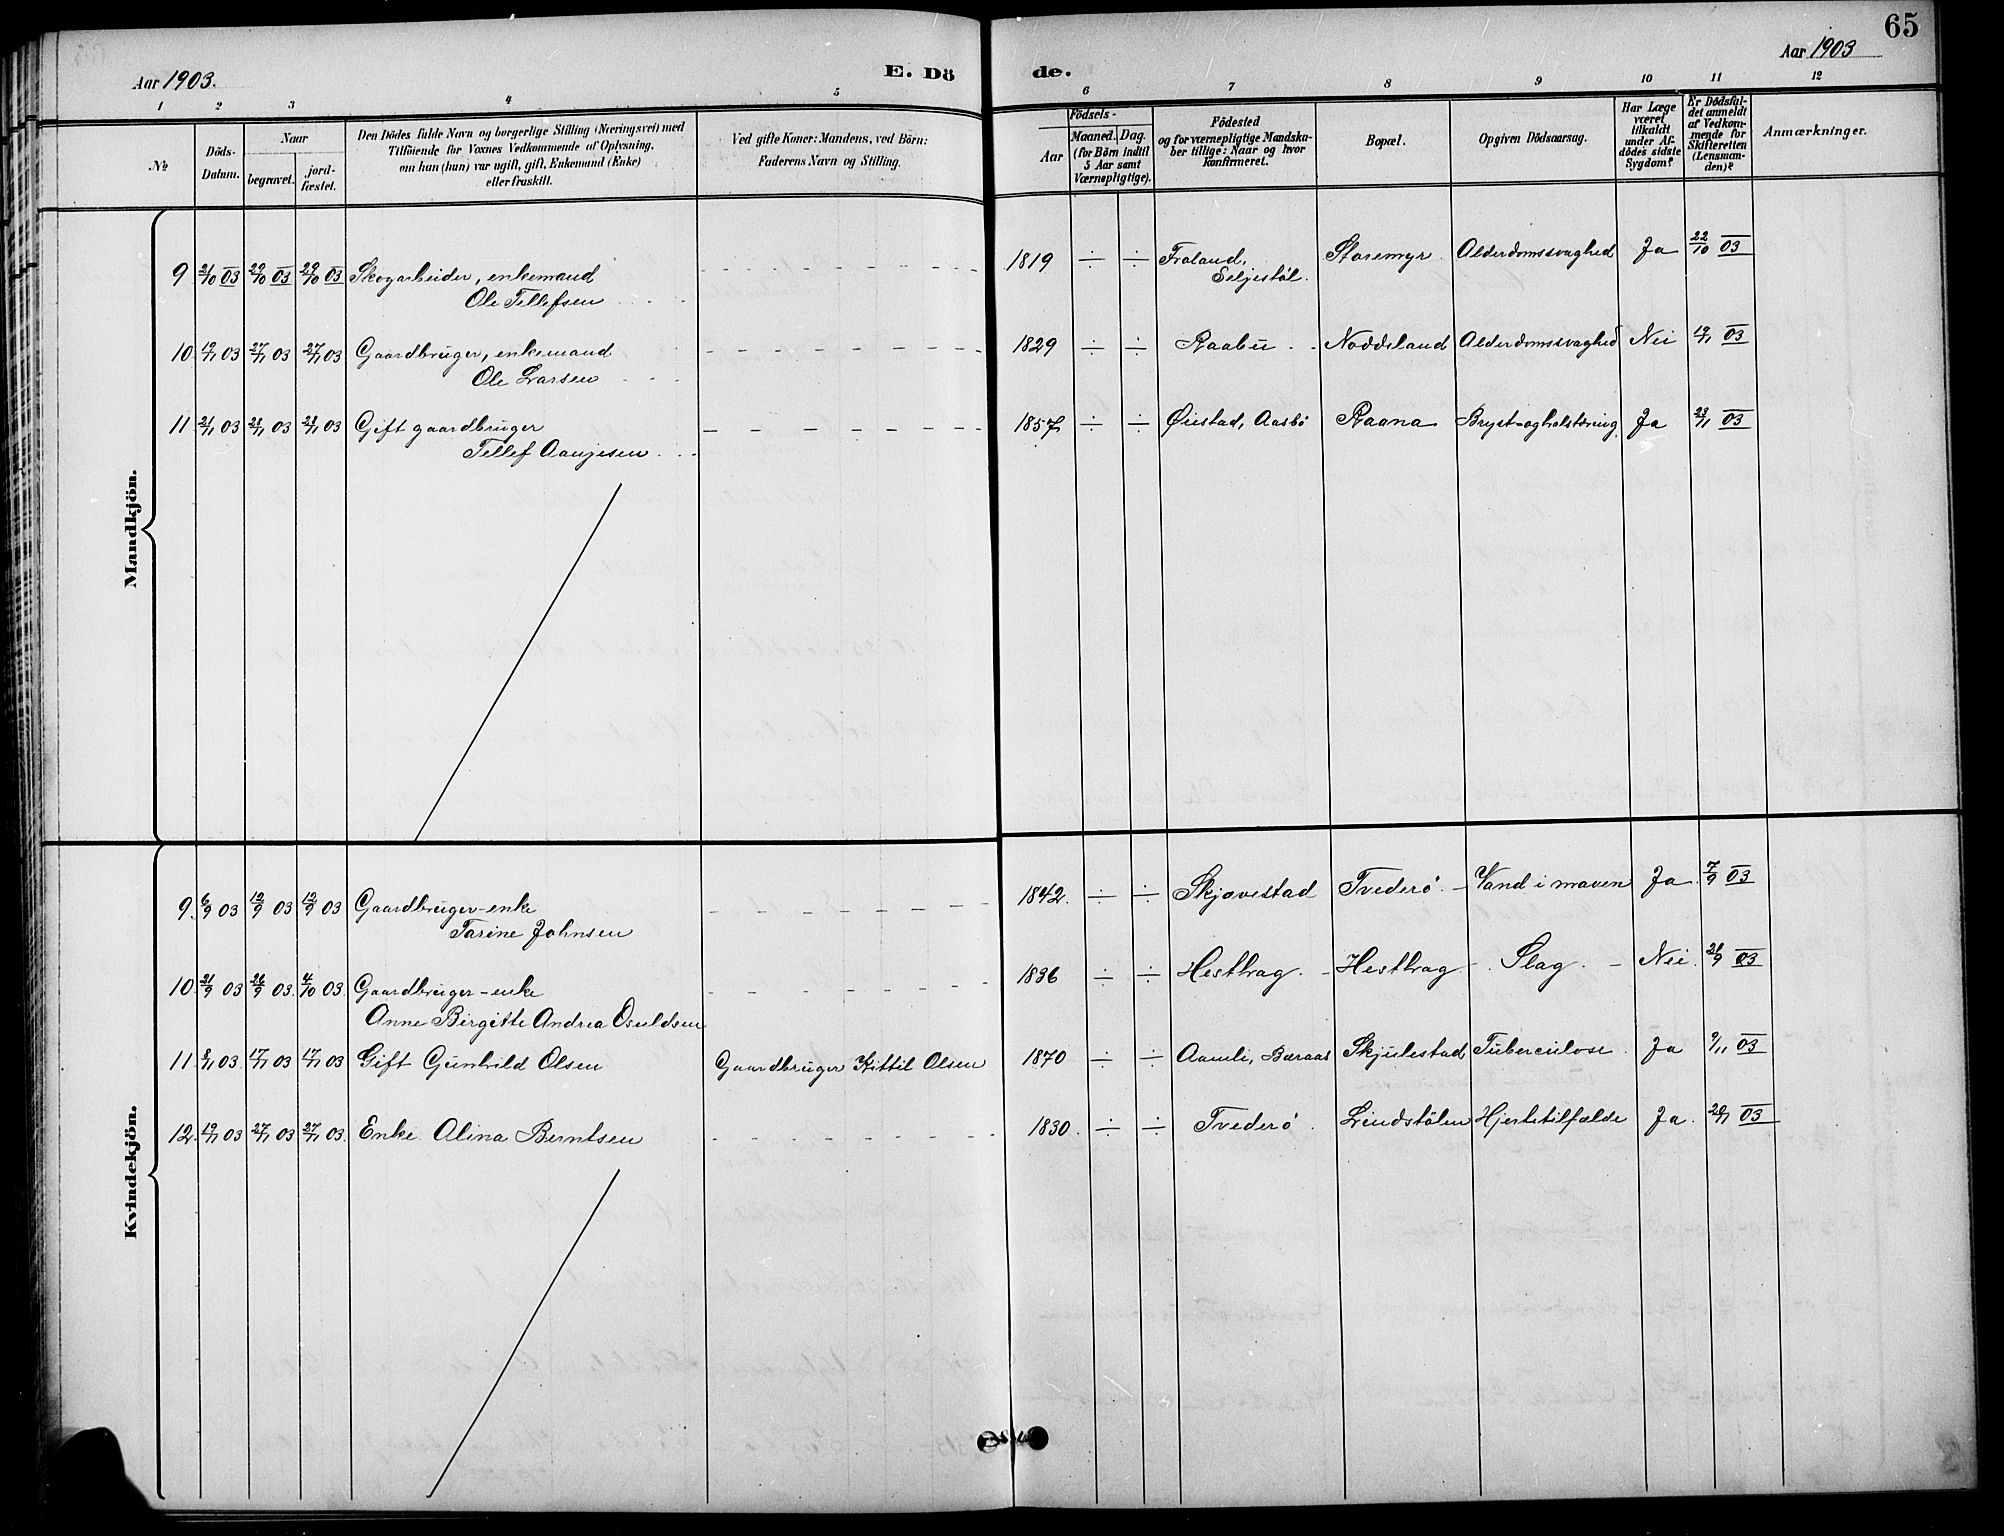 65
Aar 1903.
E. Dö
de.
Aar 1903
1 2 3 4 5 6 7 8 9 10 11 12
№
Döds-
Datum.
Naar
begravet.
jord-
fæstet.
Den Dödes fulde Navn og borgerlige Stilling (Næringsvei) med
Tilföiende for Voxnes Vedkommende af Oplysning,
om han (hun) var ugift, gift, Enkemand (Enke)
eller fraskilt.
Ved gifte Koner: Mandens, ved Börn:
Faderens Navn og Stilling.
Födsels-
Aar
Maaned. Dag.
(for Börn indtil
5 Aar samt
Værnepligtige).
Födested
og for værnepligtige Mandskа-
ber tillige: Naar og hvor
konfirmeret.
Bopæl.
Opgiven Dödsaarsag.
Har Læge
været
tilkaldt
under Af-
dödes sidste
Sygdom?
Er Dödsfal-
det anmeldt
af Vedkom-
mende for
Skifteretten
(Lensman-
den)?
Anmærkninger.
Mandkjön.
9 21/10 03 29/10 03 29/10 03 Skogarbeider, enkemand 1819 ÷ ÷ Froland, Staremyr Alderdomssvaghed Ja 22/10 03
Ole Tellefsen Seljestöl.
10 19/11 03 27/11 03 27/11 03 Gaardbruger, enkemand 1829 ÷ ÷ Raabu Noddeland Alderdomssvaghed Nei 19/11 03
Ole Larsen
11 21/11 03 28/11 03 28/11 03 Gift gaardbruger 1857 ÷ ÷ Øiestad, Aasbö Raana Bryst- og halstæring Ja 23/11 03
Tellef Aanjesen
Kvindekjön.
9. 6/9 03 12/9 03 12/9 03 Gaardbruger-enke 1842. ÷ ÷ Skjævestad Tvederö Vand i maven Ja 7/9 03
Tarine Johnsen
10. 21/9 03 26/9 03. 4/10 03. Gaardbruger-enke 1836 ÷ ÷ Hesthag. Hesthag Slag. Nei. 26/9 03
Anne Birgitte Andrea Osuldsen
11 8/11 03 17/11 03 17/11 03 Gift Gunhild Olsen Gaardbruger Kittil Olsen 1870 ÷ ÷ Aamli, Baraas Skjulestad Tuberculose. Ja 9/11 03
12. 19/11 03 27/11 03 27/11 03. Enke Alina Berntsen 1830. ÷ ÷ Tvederö Lindstölen Hjertetilfælde Ja. 20/11 03